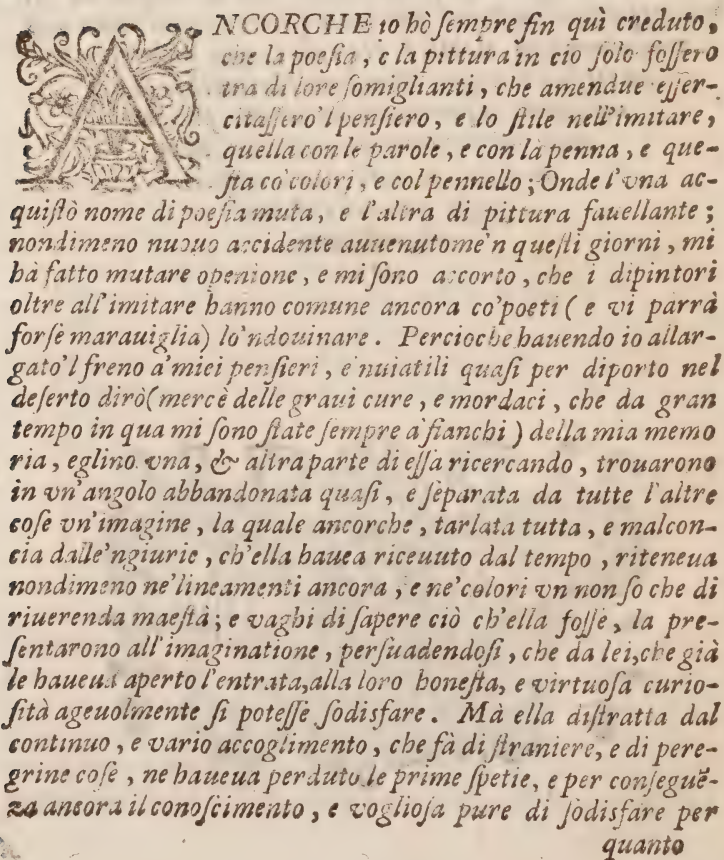 ANCORCHE io hò sempre fin quì creduto,
che la poesia, e la pittura in cio solo fossero
tra di loro somiglianti, che amendue esser-
citassero'l pensiero, e lo stile nell'imitare,
quella con le parole, e con la penna, e que-
sta co'colori, e col pennello; Onde l'vna ac-
quistò nome di poesia muta, e l'altra di pittura fauellante;
nondimeno nuouo accidente auuenutome'n questi giorni, mi
hà fatto mutare openione, e mi sono accorto, che i dipintori
oltre all'imitare hanno comune ancora co'poeti (e vi parrà
forse marauiglia) lo'ndouinare. Percioche hauendo io allar-
gato'l freno a'miei pensieri, e'nuiatili quasi per diporto nel
deserto dirò (mercè delle graui cure, e mordaci, che da gran
tempo in qua mi sono state sempre a'fianchi) della mia memo
ria, eglino vna, & altra parte di essa ricercando, trouarono
in vn'angolo abbandonata quasi, e separata da tutte l'altre
cose vn'imagine, la quale ancorche, tarlata tutta, e malcon-
cia dalle'ngiurie, ch'ella hauea riceuuto dal tempo, riteneua
nondimeno ne'lineamenti ancora, e ne'colori vn non so che di
riuerenda maestà; e vaghi di sapere ciò ch'ella fosse, la pre-
sentarono all'imaginatione, persuadendosi, che da lei, che già
le haueua aperto l'entrata, alla loro honesta, e virtuosa curio-
sità ageuolmente si potesse sodisfare. Mà ella distratta dal
continuo, e vario accoglimento, che fà di straniere, e di pere-
grine cose, ne haueua perduto le prime spetie, e per conseguē-
za ancora il conoscimento, e vogliosa pure di sodisfare per
quanto